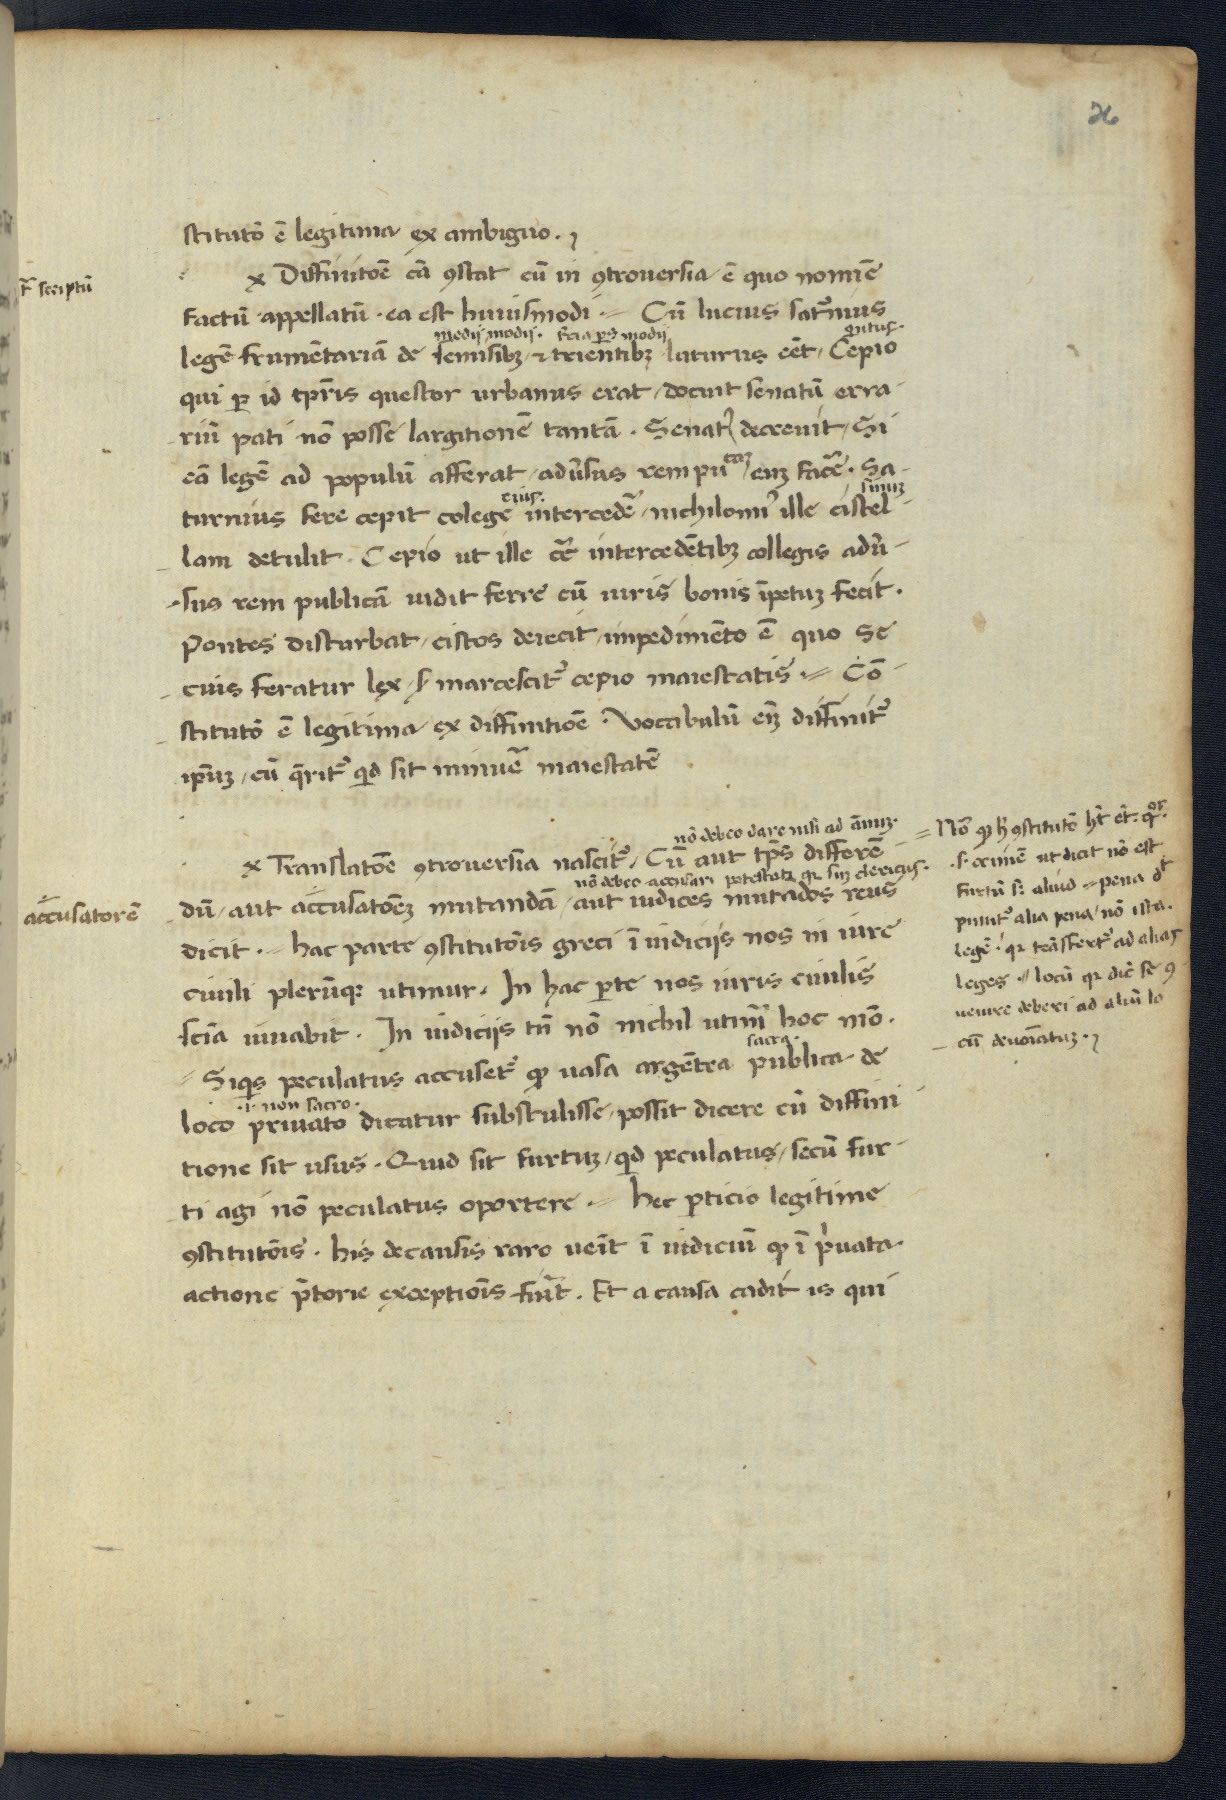 26
stitutō ē legitima ex ambiguo.
x Diffinitōe cā ꝯstat cū in ꝯtrouersia ē quo nomīe
scriptū
factū appellatū . ea est huiusmodi . Cū lucius satᵒnius
medij modij . modij
legē frumētariā de semisibꝫ & trientibꝫ laturus eēt / Cepio
qui ꝑ id tp̄ris questor urbanus erat / docuit senatū erra
riū pati nō posse largitionē tantā . Senatꝰ decreuit / Si
eā legē ad populū afferat / adūsus rem puᵗᵃᵐ eaꝫ facē . Sa
eius . suuꝫ
turnius fere cepit colege intercedē / nichilomīꝰ ille cistel
lam detulit . Cepio ut ille cē intercedētibꝫ collegis adū
sus rem publicā uidit ferre cū uiris bonis īpetuꝫ fecit .
Pontes disturbat / cistos deiecit / impedimēto ē quo se
cius feratur lex / marcescitᵒ cepio maiestatis . Cō
stitutō ē legitima ex diffinitiōe . Vocabulū eīꝫ diffinitᵒ
ip̄uꝫ / cū q̄ritᵒ qd sit minuē maiestatē
nō debeo dare nisi ad annuꝫ .
x Translatōe ꝯtrouersia nascitᵒ / Cū aut tp̄s differē
nō debeo accusari potestatꝫ qꝛ suꝫ clericus .
accusatorē
dū / aut accusatōeꝫ mutandā / aut iudices mutādos reus
dicit . hac parte ꝯstitutōis greci ī iudicijs nos in iure
ciuili plerūqꝫ utimur . In hac ꝑte nos iuris ciuilis
scīa iuuabit . In iudicijs tn̄ nō nichil utimꝰ hoc mō .
sacra .
Siqͥs peculatus accusetᵒ qꝫ uasa argētea publica de
.i. non sacro .
loco priuato dicatur substulisse / possit dicere cū diffini
tione sit usus . Quid sit furtuꝫ / qd peculatus / secū fur
ti agi nō peculatus oportere . hec ꝑticio legitime
ꝯstitutōis . his de causis raro ueīt ī iudiciū qꝫ ī pͥuata
actione p̄torie exceptiōis fiūt . Et a causa cadit is qui
Nō ꝯstitutō
.s. crimē ut dicit nō est
furtū s. aliud pena
punitᵒ alia pena / nō ista .
legē . qꝛ trāsfertᵒ ad alias
leges locū qꝛ dic̄ se ꝯ
uenire deberi ad aliū lo
cū